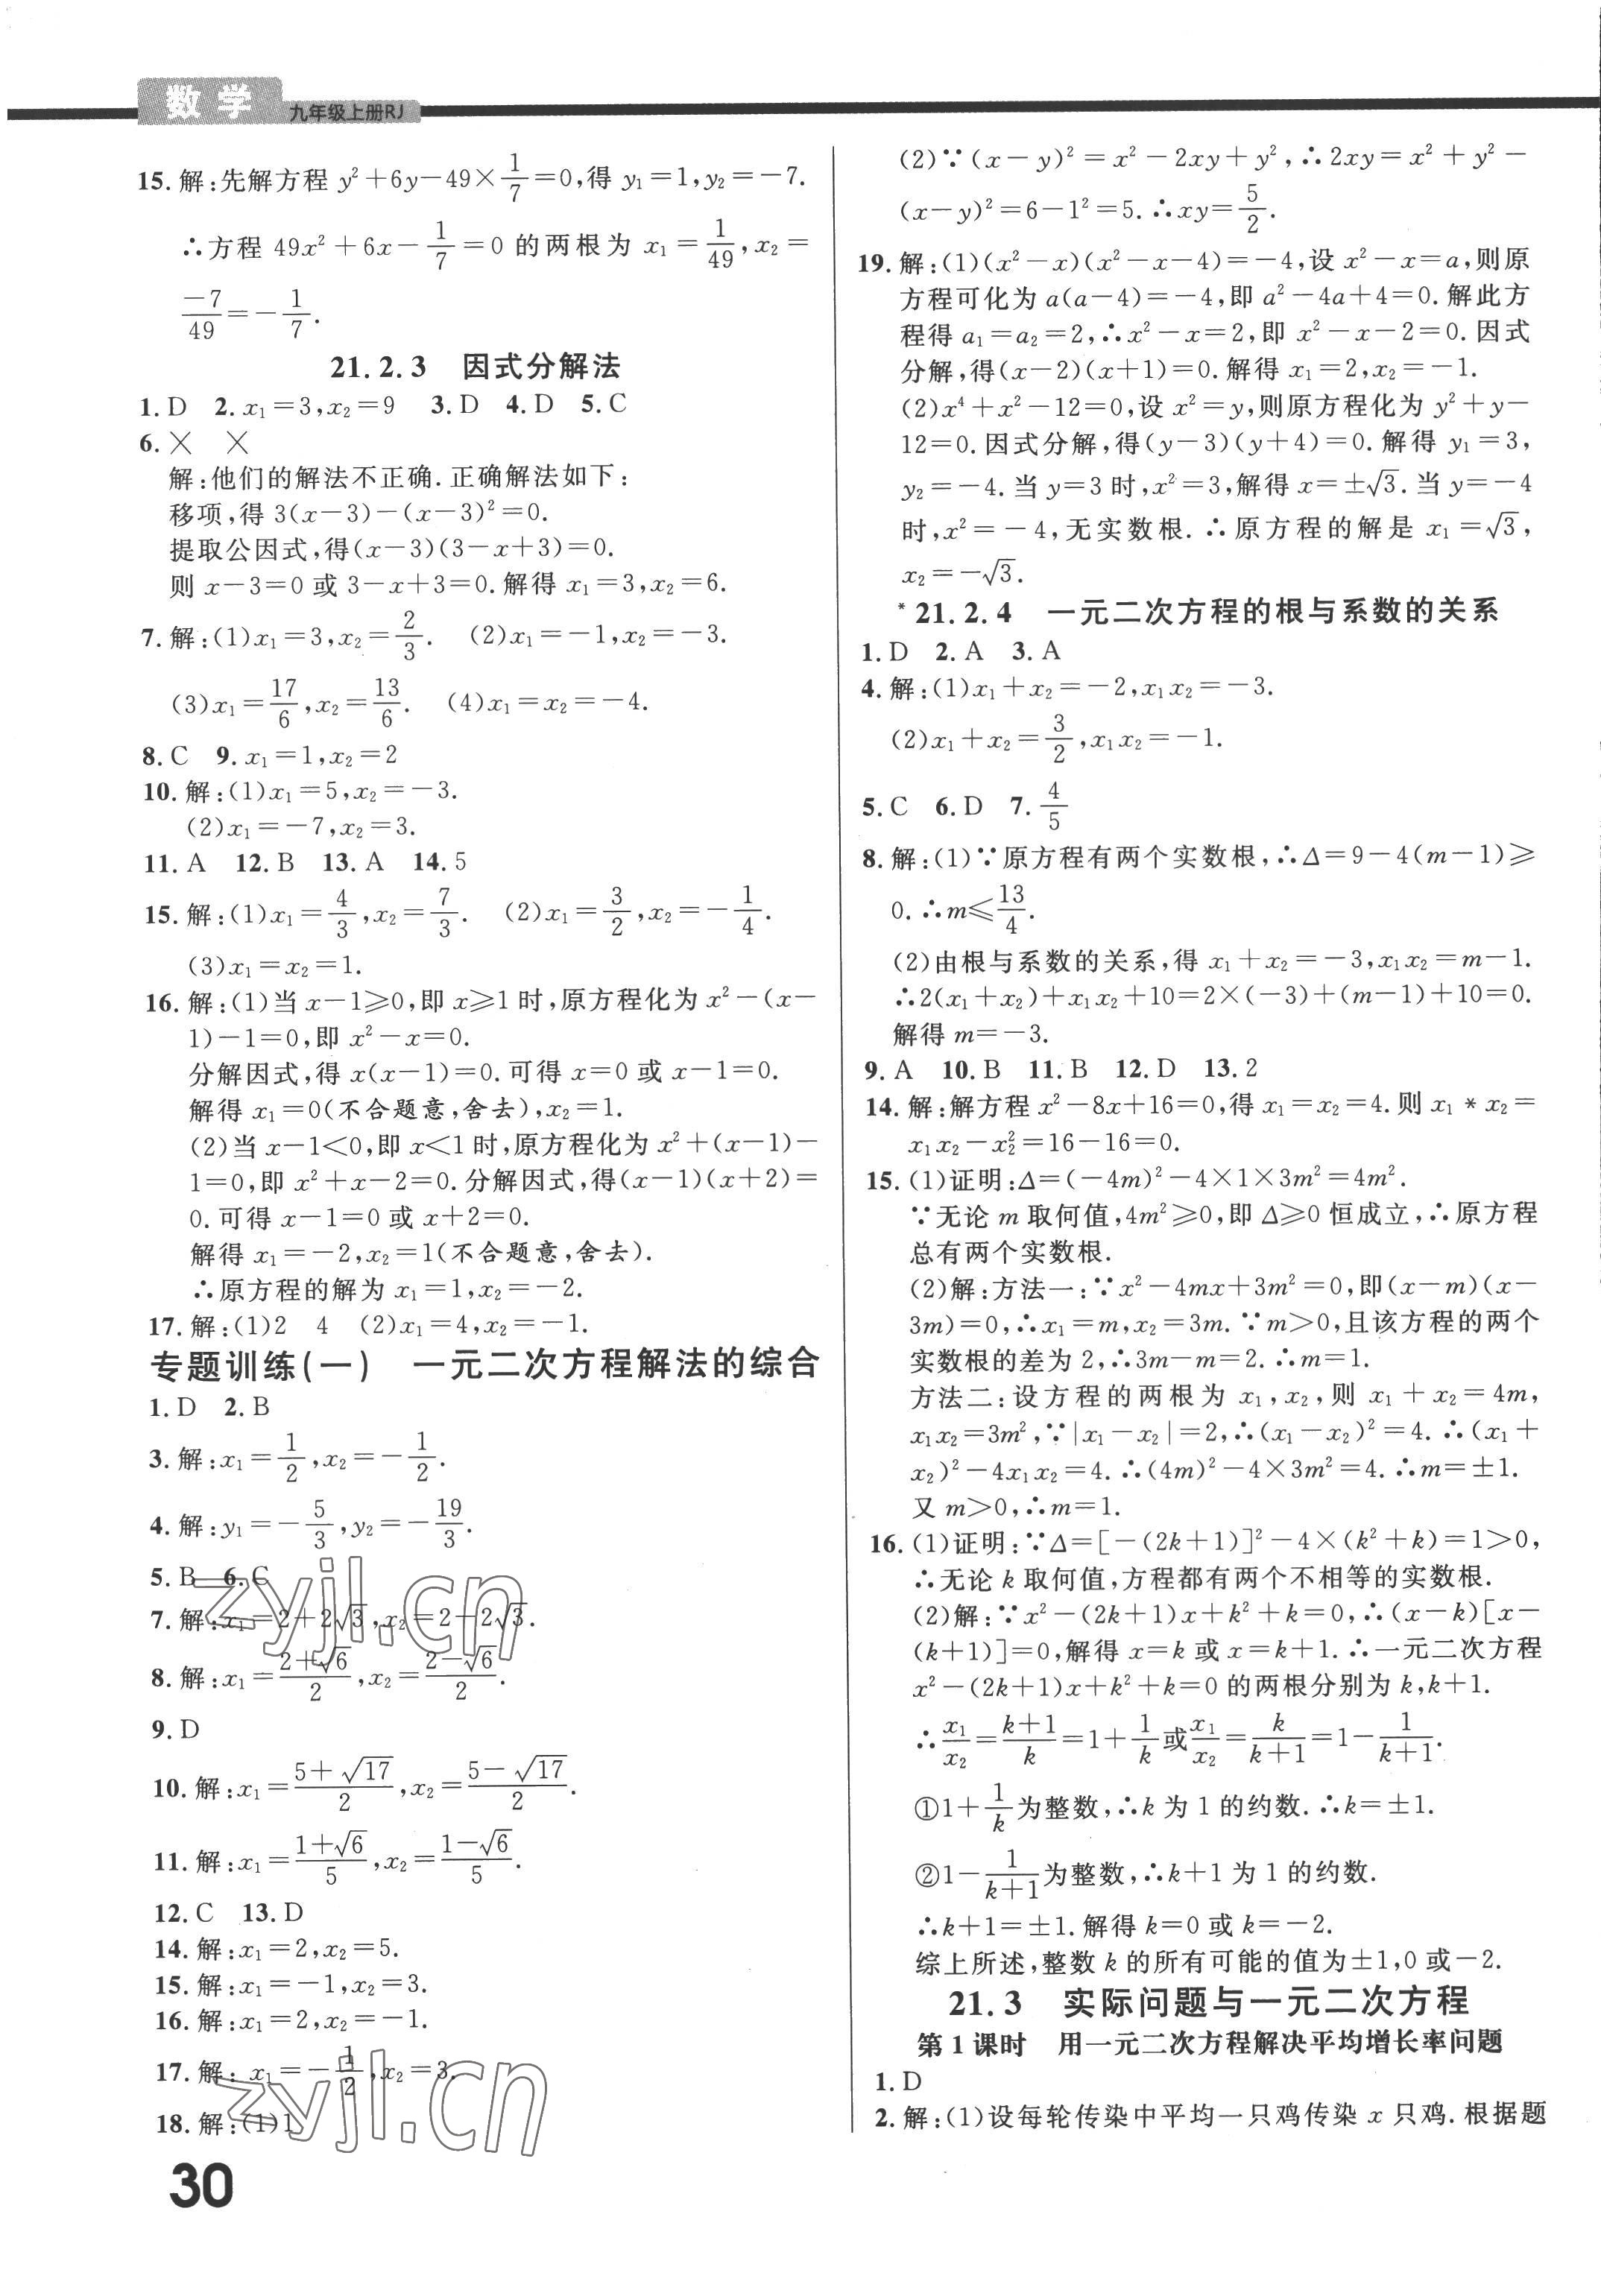 数学
九年级上册RJ
15.解:先解方程 y²+6y-49×1/7=0,得 y₁=1,y₂=-7.
∴方程 49x²+6x-1/7=0 的两根为 x₁=1/49,x₂=
-7/49=-1/7.
21.2.3 因式分解法
1.D 2.x₁=3,x₂=9 3.D 4.D 5.C
6.╳ ╳
解:他们的解法不正确.正确解法如下:
移项,得 3(x-3)-(x-3)²=0.
提取公因式,得(x-3)(3-x+3)=0.
则 x-3=0 或 3-x+3=0.解得 x₁=3,x₂=6.
7.解:(1)x₁=3,x₂=2/3. (2)x₁=-1,x₂=-3.
(3)x₁=17/6,x₂=13/6. (4)x₁=x₂=-4.
8.C 9.x₁=1,x₂=2
10.解:(1)x₁=5,x₂=-3.
(2)x₁=-7,x₂=3.
11.A 12.B 13.A 14.5
15.解:(1)x₁=4/3,x₂=7/3. (2)x₁=3/2,x₂=-1/4.
(3)x₁=x₂=1.
16.解:(1)当 x-1≥0,即 x≥1 时,原方程化为 x²-(x-
1)-1=0,即 x²-x=0.
分解因式,得 x(x-1)=0.可得 x=0 或 x-1=0.
解得 x₁=0(不合题意,舍去),x₂=1.
(2)当 x-1<0,即 x<1 时,原方程化为 x²+(x-1)-
1=0,即 x²+x-2=0.分解因式,得(x-1)(x+2)=
0.可得 x-1=0 或 x+2=0.
解得 x₁=-2,x₂=1(不合题意,舍去).
∴原方程的解为 x₁=1,x₂=-2.
17.解:(1)2 4 (2)x₁=4,x₂=-1.
专题训练(一) 一元二次方程解法的综合
1.D 2.B
3.解:x₁=1/2,x₂=-1/2.
4.解:y₁=-5/3,y₂=-19/3.
5.B 6.C
7.解:x₁=2+2√3,x₂=2-2√3.
8.解:x₁=(2+√6)/2,x₂=(2-√6)/2.
9.D
10.解:x₁=(5+√17)/2,x₂=(5-√17)/2.
11.解:x₁=(1+√6)/5,x₂=(1-√6)/5.
12.C 13.D
14.解:x₁=2,x₂=5.
15.解:x₁=-1,x₂=3.
16.解:x₁=2,x₂=-1.
17.解:x₁=-1/2,x₂=3.
18.解:(1)1
30
(2)∵(x-y)²=x²-2xy+y²,∴2xy=x²+y²-
(x-y)²=6-1²=5.∴xy=5/2.
19.解:(1)(x²-x)(x²-x-4)=-4,设 x²-x=a,则原
方程可化为 a(a-4)=-4,即 a²-4a+4=0.解此方
程得 a₁=a₂=2,∴x²-x=2,即 x²-x-2=0.因式
分解,得(x-2)(x+1)=0.解得 x₁=2,x₂=-1.
(2)x⁴+x²-12=0,设 x²=y,则原方程化为 y²+y-
12=0.因式分解,得(y-3)(y+4)=0.解得 y₁=3,
y₂=-4.当 y=3 时,x²=3,解得 x=±√3.当 y=-4
时,x²=-4,无实数根.∴原方程的解是 x₁=√3,
x₂=-√3.
*21.2.4 一元二次方程的根与系数的关系
1.D 2.A 3.A
4.解:(1)x₁+x₂=-2,x₁x₂=-3.
(2)x₁+x₂=3/2,x₁x₂=-1.
5.C 6.D 7.4/5
8.解:(1)∵原方程有两个实数根,∴Δ=9-4(m-1)≥
0.∴m≤13/4.
(2)由根与系数的关系,得 x₁+x₂=-3,x₁x₂=m-1.
∴2(x₁+x₂)+x₁x₂+10=2×(-3)+(m-1)+10=0.
解得 m=-3.
9.A 10.B 11.B 12.D 13.2
14.解:解方程 x²-8x+16=0,得 x₁=x₂=4.则 x₁*x₂=
x₁x₂-x₂²=16-16=0.
15.(1)证明:Δ=(-4m)²-4×1×3m²=4m².
∵无论 m 取何值,4m²≥0,即 Δ≥0 恒成立,∴原方程
总有两个实数根.
(2)解:方法一:∵x²-4mx+3m²=0,即(x-m)(x-
3m)=0,∴x₁=m,x₂=3m.∵m>0,且该方程的两个
实数根的差为 2,∴3m-m=2.∴m=1.
方法二:设方程的两根为 x₁,x₂,则 x₁+x₂=4m,
x₁x₂=3m²,∵|x₁-x₂|=2,∴(x₁-x₂)²=4.∴(x₁+
x₂)²-4x₁x₂=4.∴(4m)²-4×3m²=4.∴m=±1.
又 m>0,∴m=1.
16.(1)证明:∵Δ=[-(2k+1)]²-4×(k²+k)=1>0,
∴无论 k 取何值,方程都有两个不相等的实数根.
(2)解:∵x²-(2k+1)x+k²+k=0,∴(x-k)[x-
(k+1)]=0,解得 x=k 或 x=k+1.∴一元二次方程
x²-(2k+1)x+k²+k=0 的两根分别为 k,k+1.
∴x₁/x₂=(k+1)/k=1+1/k或x₁/x₂=k/(k+1)=1-1/(k+1).
①1+1/k为整数,∴k 为 1 的约数.∴k=±1.
②1-1/(k+1)为整数,∴k+1 为 1 的约数.
∴k+1=±1.解得 k=0 或 k=-2.
综上所述,整数 k 的所有可能的值为±1,0 或-2.
21.3 实际问题与一元二次方程
第 1 课时 用一元二次方程解决平均增长率问题
1.D
2.解:(1)设每轮传染中平均一只鸡传染 x 只鸡.根据题
zyjl.cn
zyjl.cn